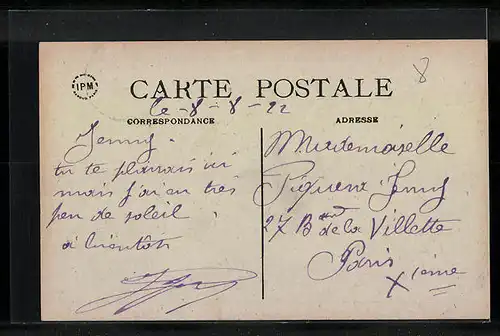 8
IPM
CARTE POSTALE
Le - 8 - 8 - 22
CORRESPONDANCE
Jenny.
tu te plairais ici
mais j'ai eu très
peu de soleil
à bientôt
ADRESSE
Mademoiselle
Jenny
27 Bd de la Villette
Paris
Xième